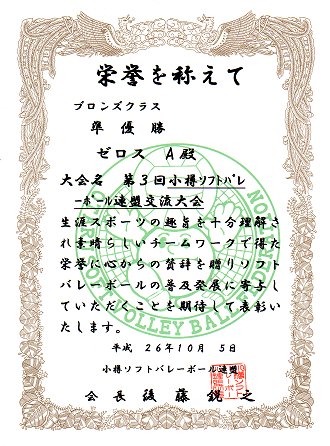 栄誉を称えて
ブロンズクラス
準優勝
ゼロス A殿
大会名 第3回小樽ソフトバレ
ーボール連盟交流大会
生涯スポーツの趣旨を十分理解さ
れ素晴らしいチームワークで得た
栄誉に心からの賛辞を贈りソフト
バレーボールの普及発展に寄与し
ていただくことを期待して表彰い
たします。
平成 26年10月 5日
小樽ソフトバレーボール連盟
会長 後藤 鋭之